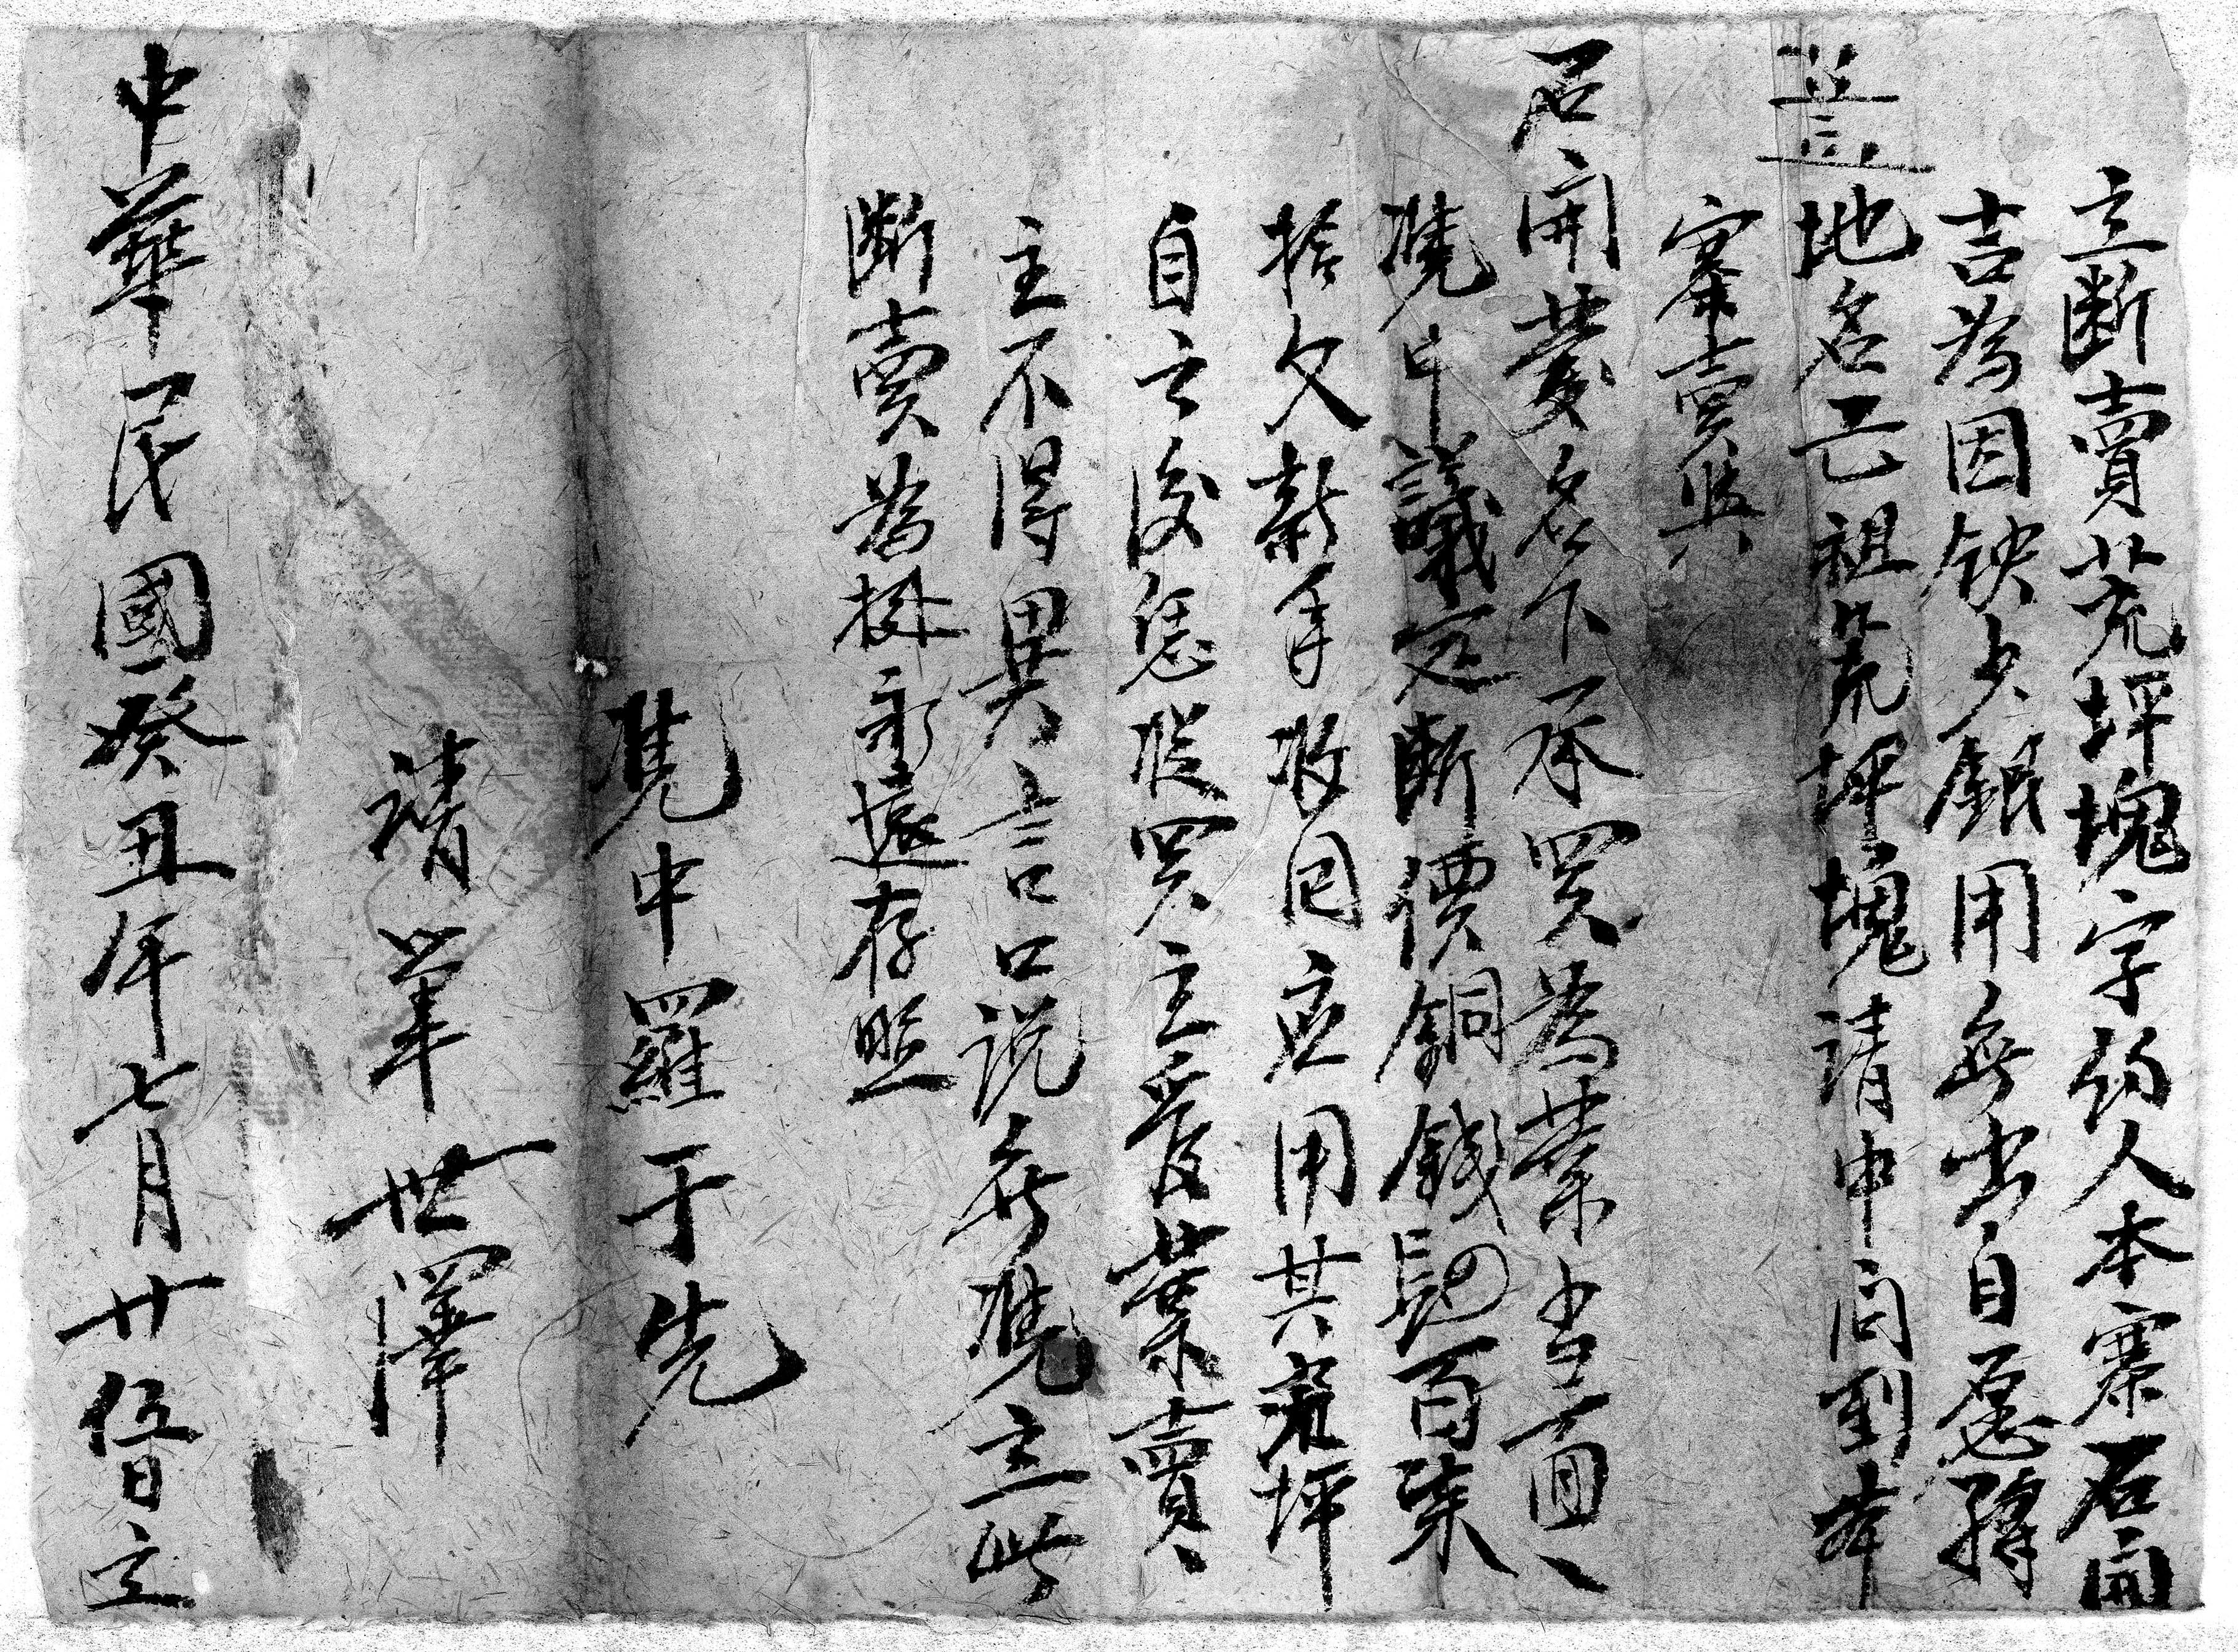 立断賣荒坪塊字約人本寨石開
吉為因缺少銀用無出自愿將
地名己祖荒坪塊請中问到本
寨賣與
石開慶名下承買為業当面
憑中議定断價銅錢百柒
拾文親手收囘应用其荒坪
自之後恁從買主管業賣
主不得異言口说無憑立此
断賣為據永遠存照
憑中羅于先
請筆世澤
中華民國癸丑年七月廿伍日立